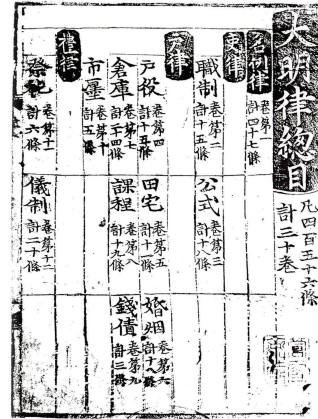 大明律總目
凡四百五十六條
計三十卷
名例律
卷第一
計四十七條
吏律
職制
卷第二
計十五條
公式
卷第三
計十八條
戶律
戶役
卷第四
計十五條
田宅
卷第五
計十一條
婚姻
卷第六
計十八條
倉庫
卷第七
計二十四條
課程
卷第八
計十九條
錢債
卷第九
計三條
市廛
卷第十
計五條
禮律
祭祀
卷第十一
計六條
儀制
卷第十二
計二十條